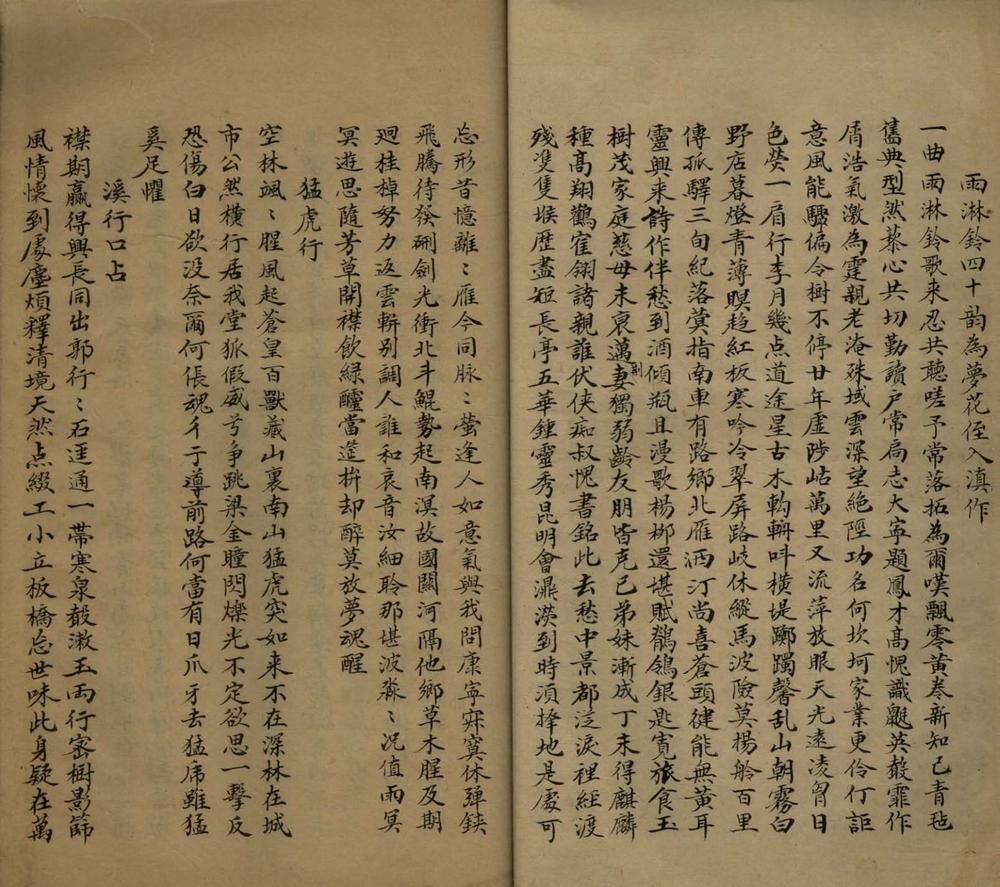 雨淋鈴四十韵為夢花侄入滇作
一曲雨淋鈴歌來忍共聽嗟予常落拓為爾嘆飄零黃奏新知已青毡
舊典型然藜心共切勤讀户常扃志大寧題鳳才高愧識鼮英皷霏作
屑浩氣激為霆親老淹殊域雲深望絕陘功名何坎坷家業更伶仃詎
意風能驟偏令樹不停廿年虛陟岵萬里又流萍放眼天光遠凌胷日
色熒一肩行李月幾点道途星古木鞫輧呌橫堤躑躅馨乱山朝霧白
野店暮燈青薄暝趍紅板寒吟冷翠屏路岐休縱馬波險莫揚舲百里
傳孤驛三旬紀落蓂指南車有路鄉北雁洒汀尚喜蒼頭健能無黃耳
靈興來詩作伴愁到酒傾瓶且漫歌楊栁還堪賦鶺鴒銀匙寬旅食玉
樹茂家庭慈母未衰邁荆妻獨弱齡友朋皆克已弟妹漸成丁未得麒麟
種髙翔鸛寉翎諸親誰伏俠痴叔愧書銘此去愁中景都泛淚裡經渡
殘雙隻堠歴盡短長亭五華鍾靈秀昆明會濎濙到時湏擇地是處可
忘形昔憶離〻雁今同脉〻螢逢人如意氣與我問康寧寂寞休彈鋏
飛騰待發硎劍光衝北斗鯤勢起南溟故國關河隔他鄉草木腥及期
廻桂棹努力返雲軿别調人誰和哀音汝細聆那堪波淼〻况值雨冥
冥遊思隨芳草開襟飲綠醽當筵拚却醉莫放夢魂醒
猛虎行
空林颯〻腥風起蒼皇百獸藏山裏南山猛虎突如来不在深林在城
市公然橫行居我堂狐假威兮爭跳梁金瞳閃爍光不定欲思一擊反
恐傷白日欲没奈爾何倀魂彳亍導前路何當有日爪牙去猛虎雖猛
奚足懼
溪行口占
襟期贏得興長同出郭行〻石逕通一帶寒泉皷漱玉両行密樹影篩
風情懷到處塵煩釋清境天然点綴工小立板橋忘世味此身疑在萬